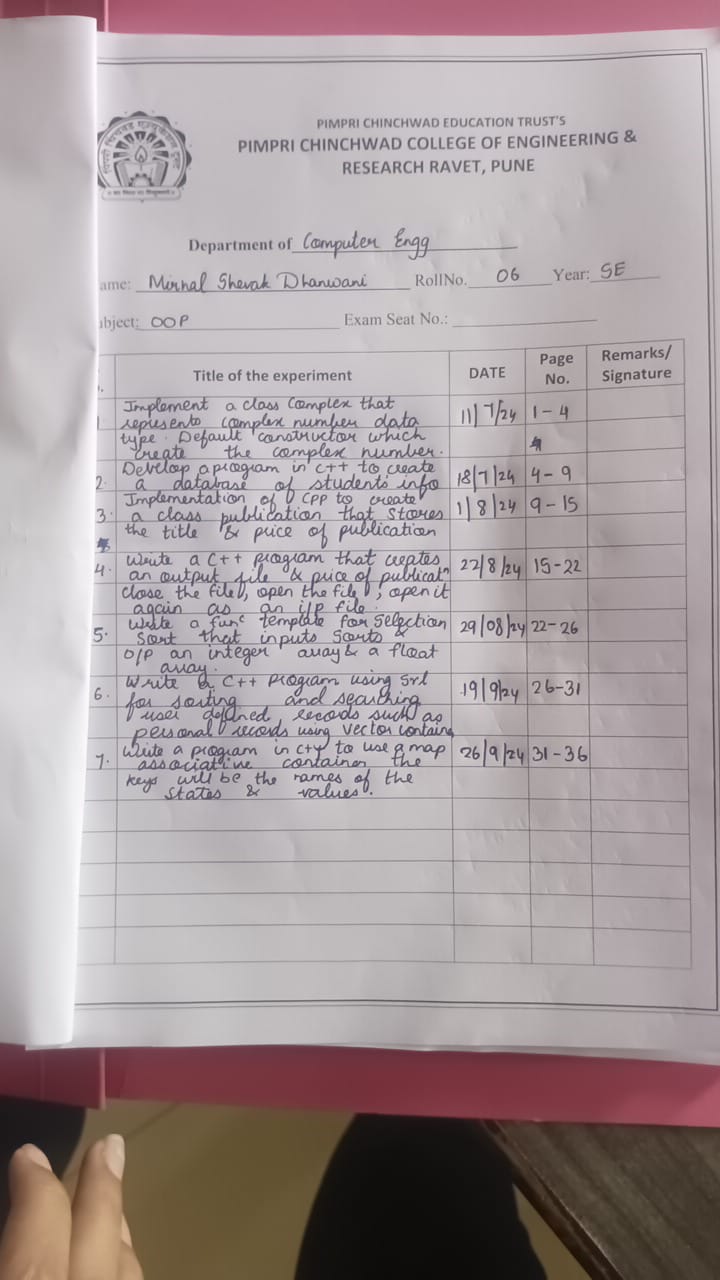 PIMPRI CHINCHWAD EDUCATION TRUST'S
PIMPRI CHINCHWAD COLLEGE OF ENGINEERING &
RESEARCH RAVET, PUNE
Department of Computer Engg
ame: Mirnal Shevak Dhanwani RollNo. 06 Year: SE
bject: OOP Exam Seat No.:
Title of the experiment DATE Page No. Remarks/ Signature
Implement a class Complex that 11/7/24 1-4
represents complex number data
type. Default constructor which
create the complex number.
2. Develop a program in C++ to create 18/7/24 4-9
a database of students info
3. Implementation of CPP to create 1/8/24 9-15
a class publication that stores
the title & price of publication
4. Write a C++ program that creates 22/8/24 15-22
an output file & price of publicatn
close the file, open the file, open it
again as an i/p file.
5. Write a func template for Selection 29/08/24 22-26
Sort that inputs Sorts &
O/P an integer array & a float
array.
6. Write a C++ program using Srl 19/9/24 26-31
for sorting and searching
user defined records such as
personal records using vector containe
7. Write a program in C++ to use a map 26/9/24 31-36
associative container the
keys will be the names of the
states & values.